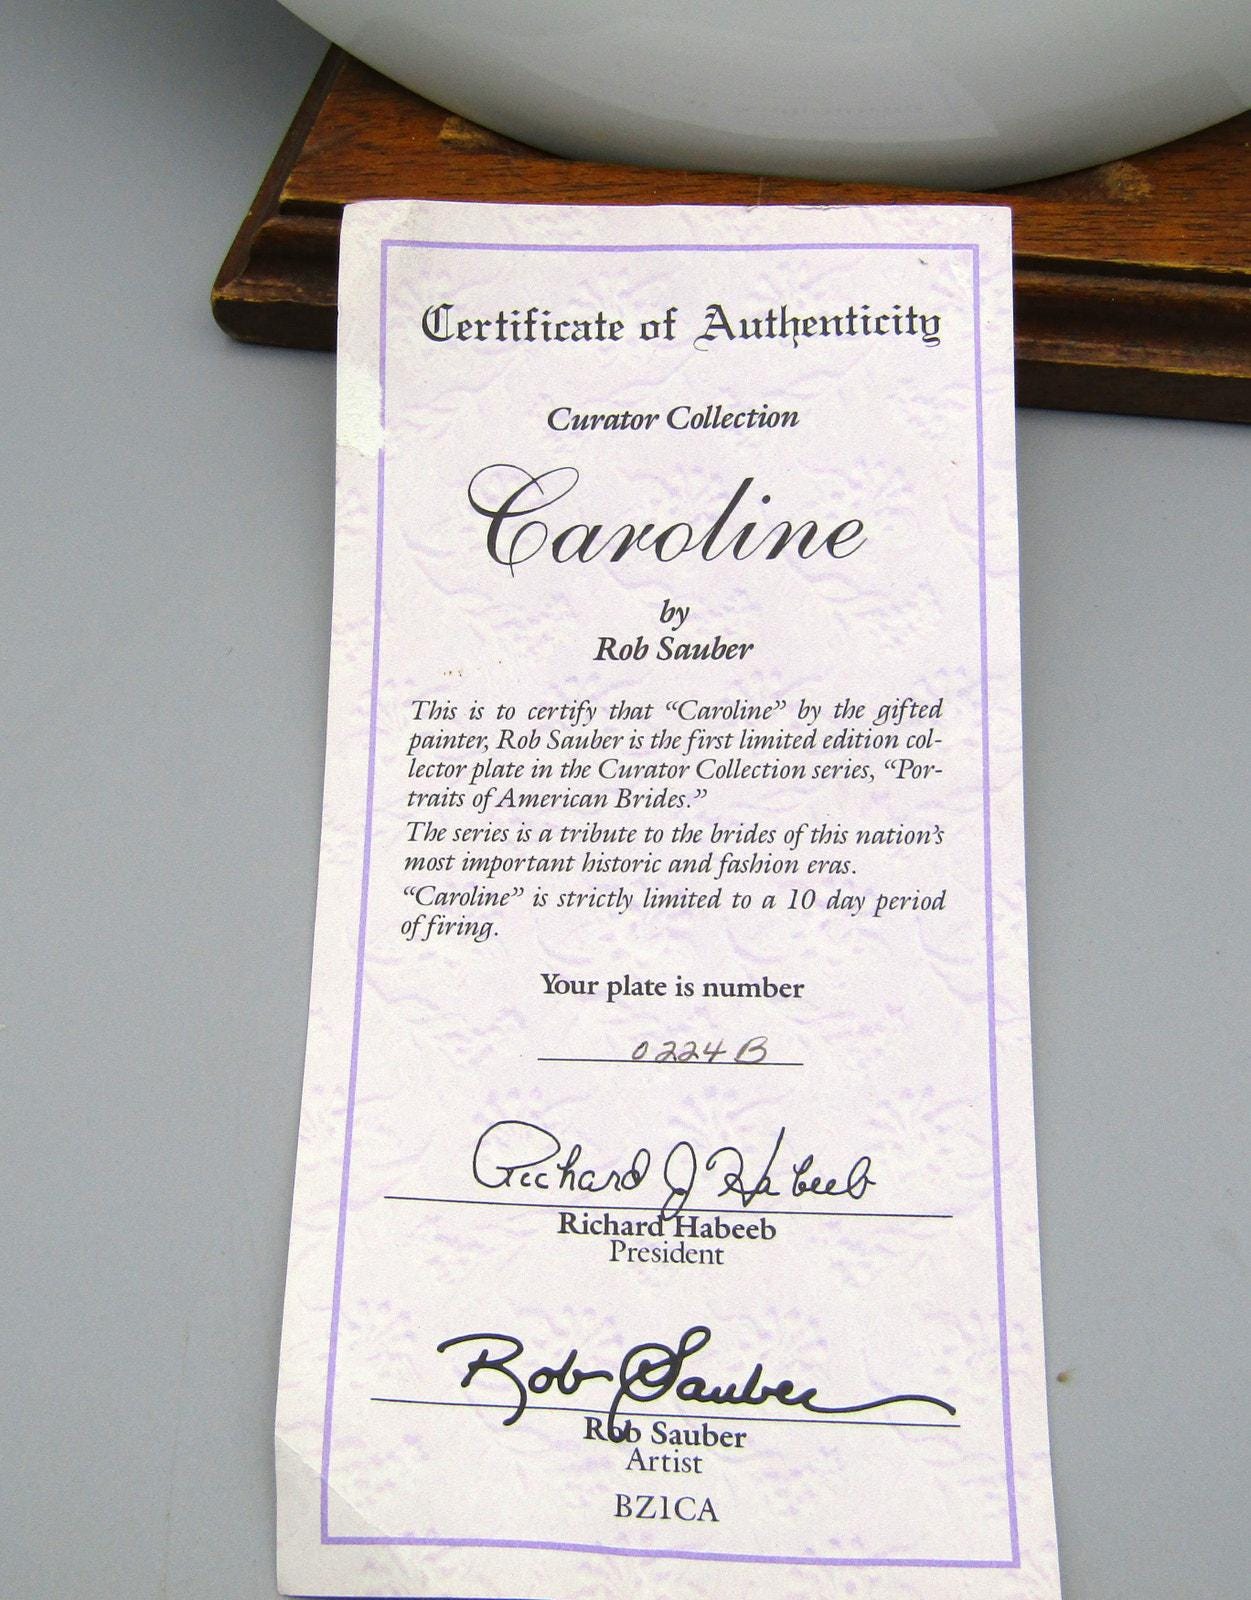 Certificate of Authenticity
Curator Collection
Caroline
by
Rob Sauber
This is to certify that “Caroline” by the gifted
painter, Rob Sauber is the first limited edition col-
lector plate in the Curator Collection series, “Por-
traits of American Brides.”
The series is a tribute to the brides of this nation’s
most important historic and fashion eras.
“Caroline” is strictly limited to a 10 day period
of firing.
Your plate is number
0224B
Richard J Habeeb
Richard Habeeb
President
Rob Sauber
Rob Sauber
Artist
BZ1CA